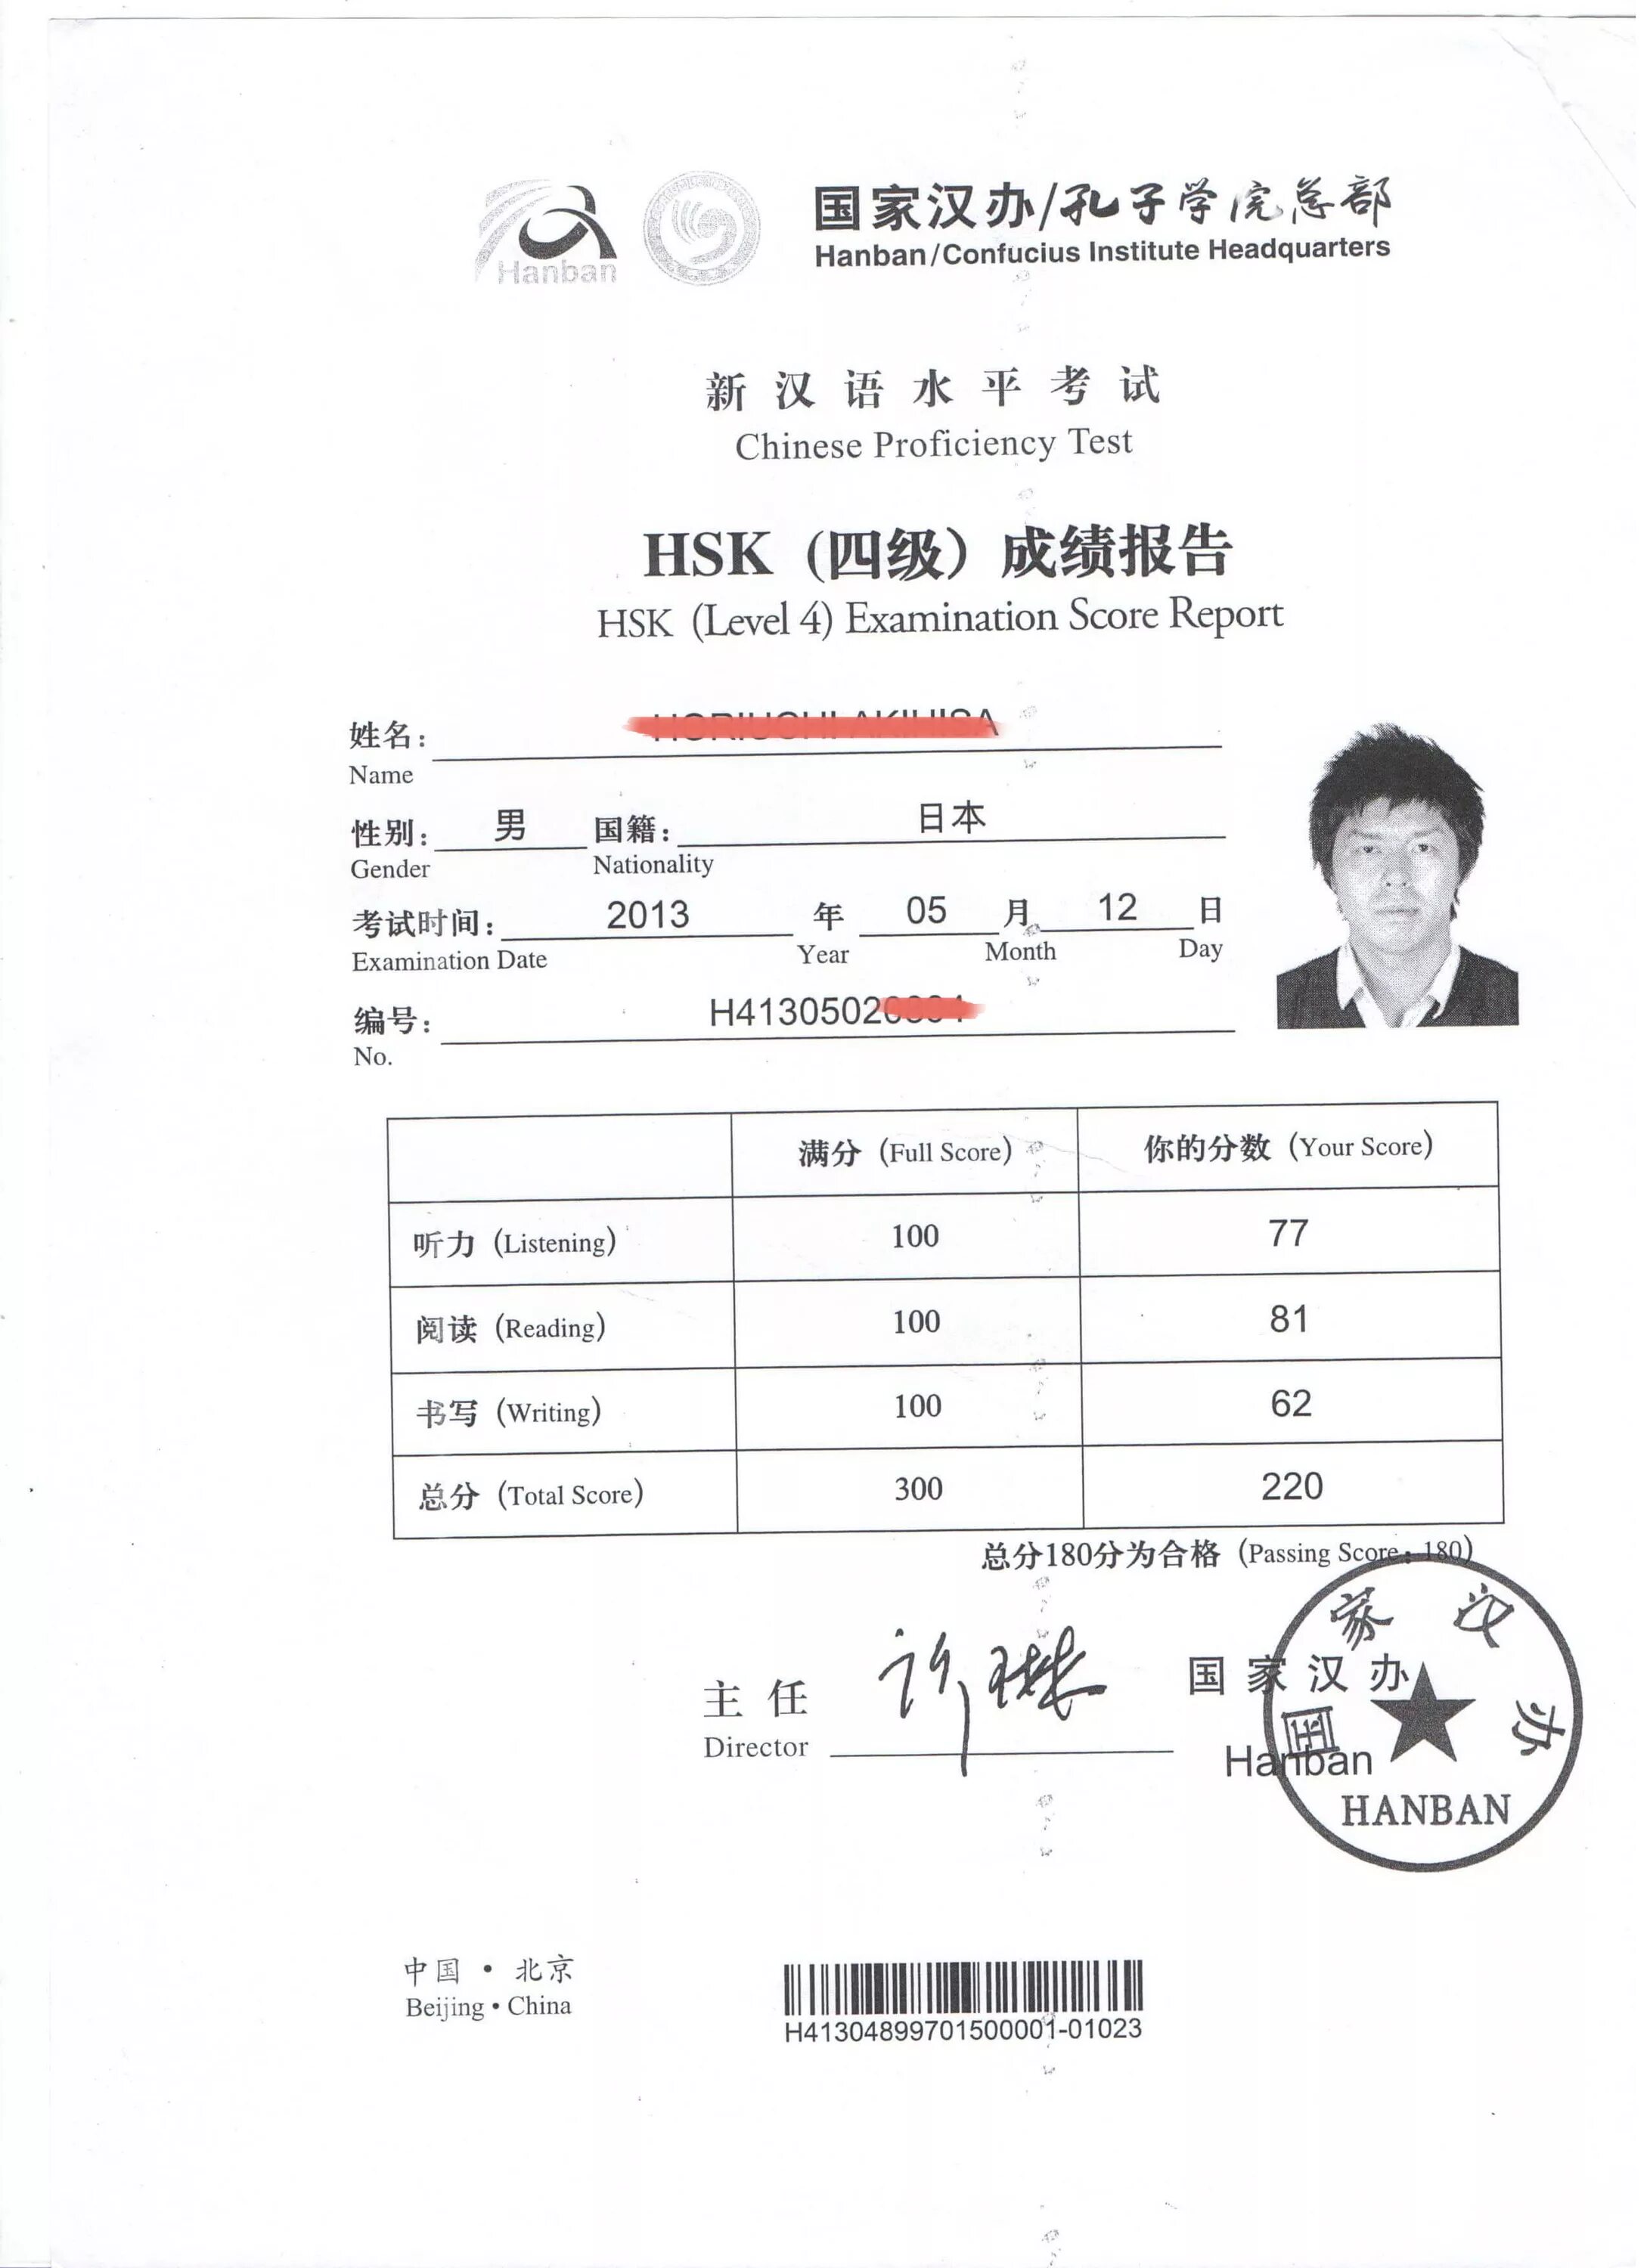 Hanban
国家汉办/孔子学院总部
Hanban/Confucius Institute Headquarters
新汉语水平考试
Chinese Proficiency Test
HSK（四级）成绩报告
HSK (Level 4) Examination Score Report
姓名：
Name
性别： 男 国籍： 日本
Gender Nationality
考试时间： 2013 年 05 月 12 日
Examination Date Year Month Day
编号： H4130502
No.
满分（Full Score） 你的分数（Your Score）
听力（Listening） 100 77
阅读（Reading） 100 81
书写（Writing） 100 62
总分（Total Score） 300 220
总分180分为合格（Passing Score：180）
主任 许琳
Director
国家汉办
Hanban
国家汉办
HANBAN
中国·北京
Beijing·China
H41304899701500001-01023